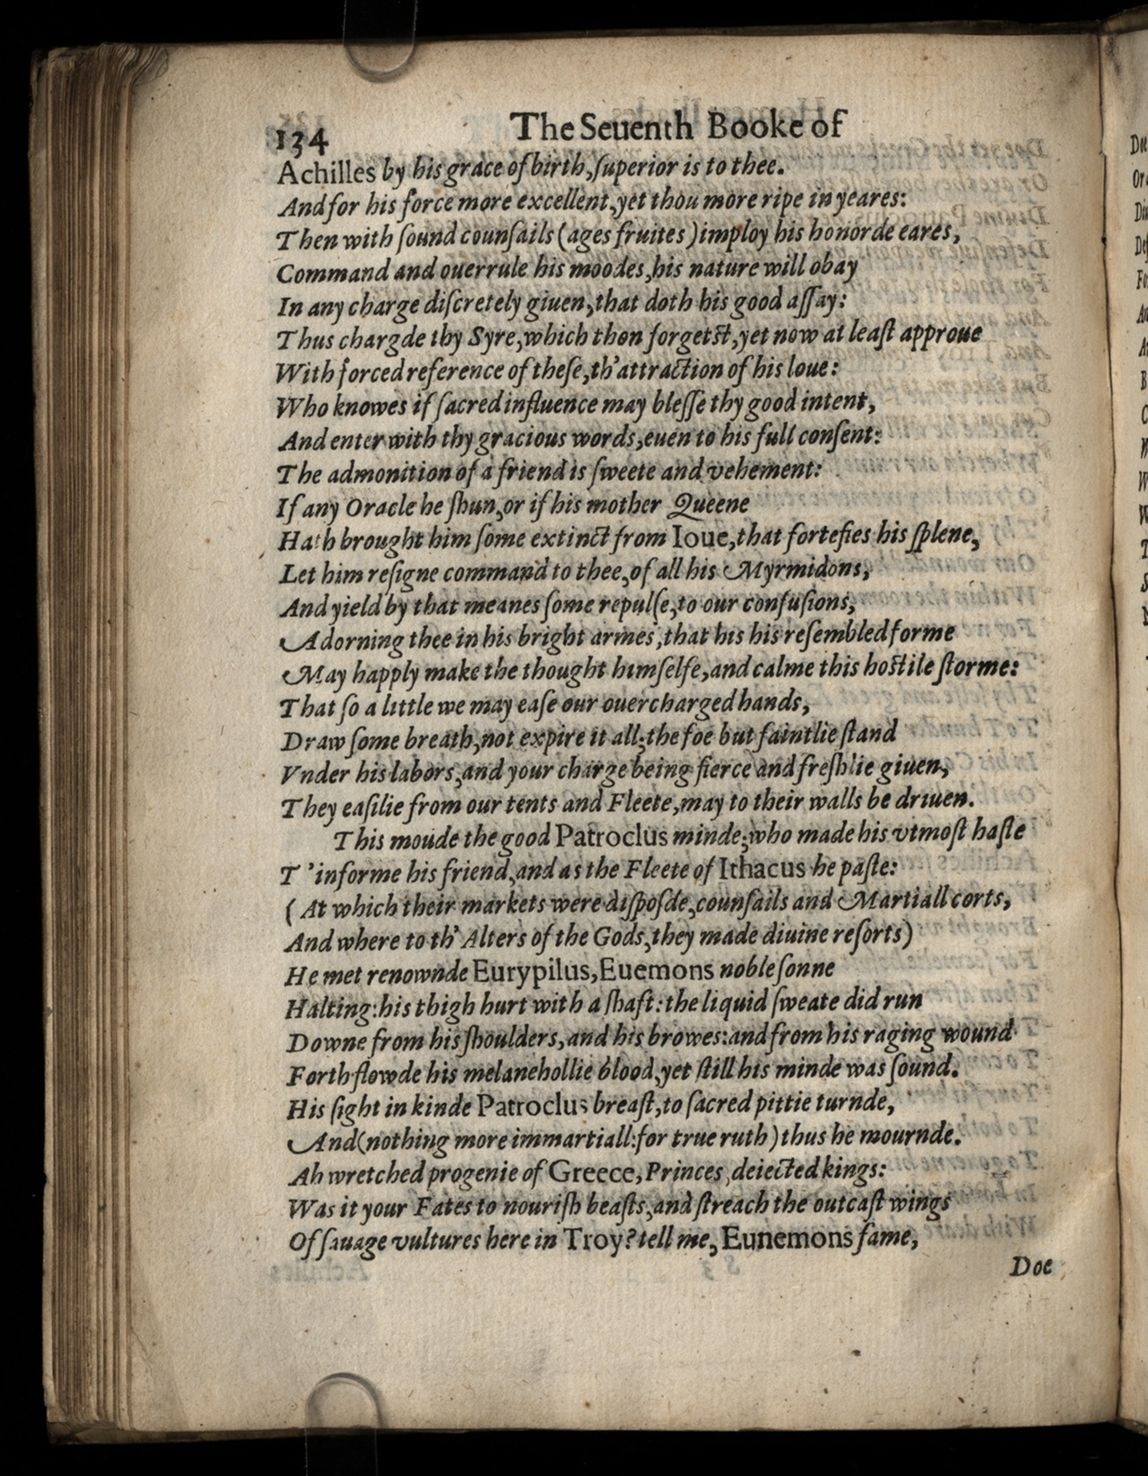 134 The Seuenth Booke of
Achilles by his grace of birth, ſuperior is to thee.
And for his force more excellent, yet thou more ripe in yeares:
Then with ſound counſails (ages fruites) imploy his honorde eares,
Command and ouerrule his moodes, his nature will obay
In any charge diſcretely giuen, that doth his good aſſay:
Thus chargde thy Syre, which thon forgetſt, yet now at leaſt approue
With forced reference of theſe, th'attraction of his loue:
Who knowes if ſacred influence may bleſſe thy good intent,
And enter with thy gracious words, euen to his full conſent:
The admonition of a friend is ſweete and vehement:
If any Oracle he ſhun, or if his mother Queene
Hath brought him ſome extinct from Ioue, that fortefies his ſplene,
Let him reſigne command to thee, of all his Myrmidons,
And yield by that meanes ſome repulſe, to our confuſions,
Adorning thee in his bright armes, that his his reſembled forme
May happly make the thought himſelfe, and calme this hoſtile ſtorme:
That ſo a little we may eaſe our ouercharged hands,
Draw ſome breath, not expire it all; the foe but faintlie ſtand
Vnder his labors, and your charge being fierce and freſhlie giuen,
They eaſilie from our tents and Fleete, may to their walls be driuen.
This moude the good Patroclus minde; who made his vtmoſt haſte
T'informe his friend, and as the Fleete of Ithacus he paſte:
(At which their markets were diſpoſde, counſails and Martiall corts,
And where to th' Alters of the Gods, they made diuine reſorts)
He met renownde Eurypilus, Euemons noble ſonne
Halting: his thigh hurt with a ſhaft: the liquid ſweate did run
Downe from his ſhoulders, and his browes: and from his raging wound
Forth flowde his melanehollie blood, yet ſtill his minde was ſound.
His ſight in kinde Patroclus breaſt, to ſacred pittie turnde,
And (nothing more immartiall: for true ruth) thus he mournde.
Ah wretched progenie of Greece, Princes, deiected kings:
Was it your Fates to nouriſh beaſts, and ſtreach the outcaſt wings
Of ſauage vultures here in Troy? tell me, Eunemons fame,
Doe